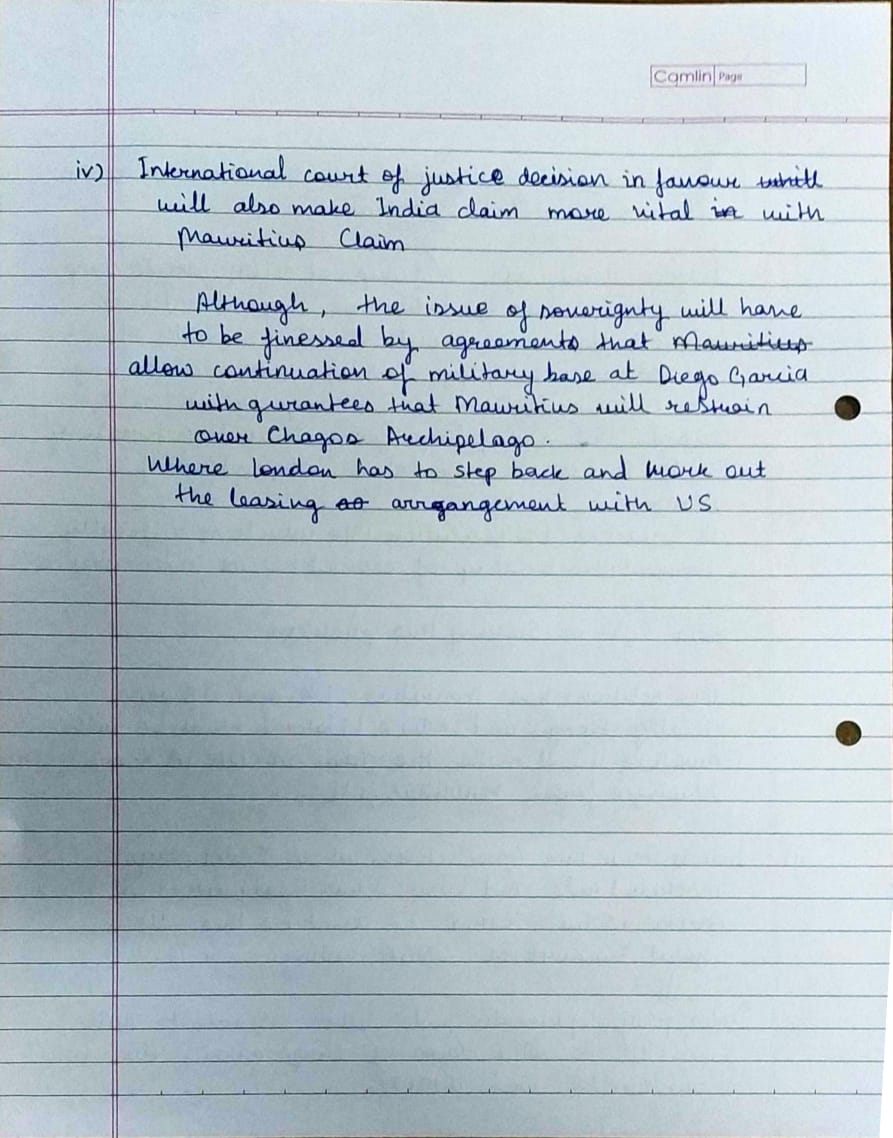 Camlin Page
iv) International court of justice decision in favour
will also make India claim more vital in with
Mauritius Claim
Although, the issue of soverignty will have
to be finessed by agreements that Mauritius
allow continuation of military base at Diego Garcia
with gurantees that Mauritius will restrain
over Chagos Archipelago.
Where london has to step back and work out
the leasing arrgangement with US